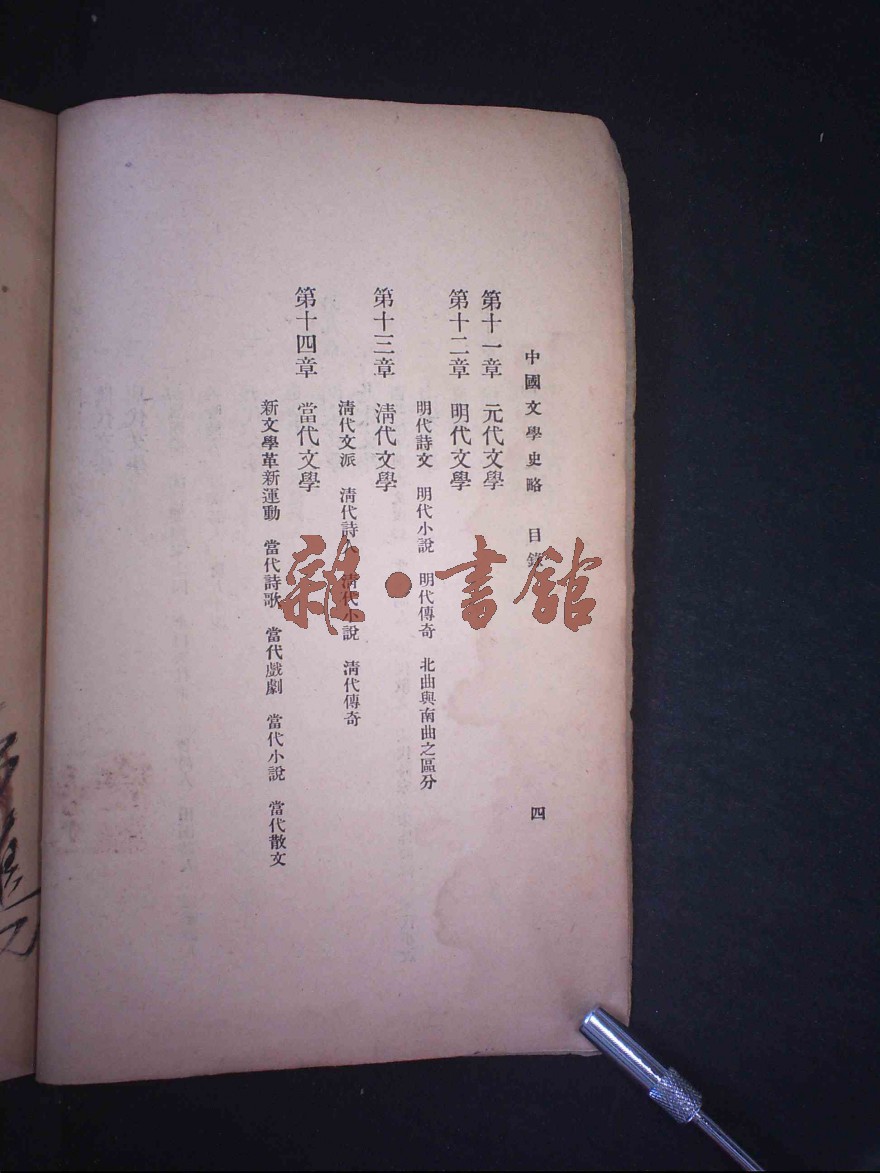 中國文學史略　目錄　四
第十一章　元代文學
第十二章　明代文學
明代詩文　明代小說　明代傳奇　北曲與南曲之區分
第十三章　清代文學
清代文派　清代詩人　清代小說　清代傳奇
第十四章　當代文學
新文學革新運動　當代詩歌　當代戲劇　當代小說　當代散文
雜·書館